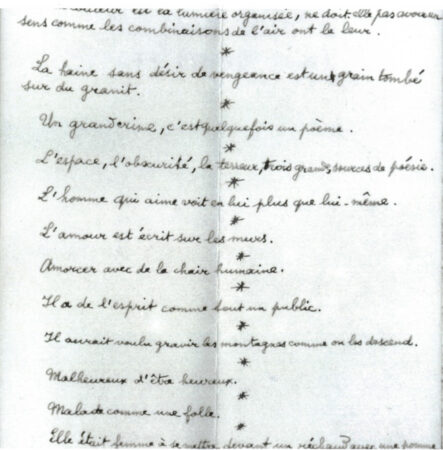 couleur est la lumière organisée, ne doit-elle pas avoir un
sens comme les combinaisons de l'air ont la leur.
*
La haine sans désir de vengeance est un grain tombé
sur du granit.
*
Un grand crime, c'est quelquefois un poème.
*
L'espace, l'obscurité, la terreur, trois grandes sources de poésie.
*
L'homme qui aime voit en lui plus que lui-même.
*
L'amour est écrit sur les murs.
*
Amorcer avec de la chair humaine.
*
Il a de l'esprit comme tout un public.
*
Il aurait voulu gravir les montagnes comme on les descend.
*
Malheureux d'être heureux.
*
Malade comme une folle.
*
Elle était femme à se mettre devant un réchaud avec une pomme